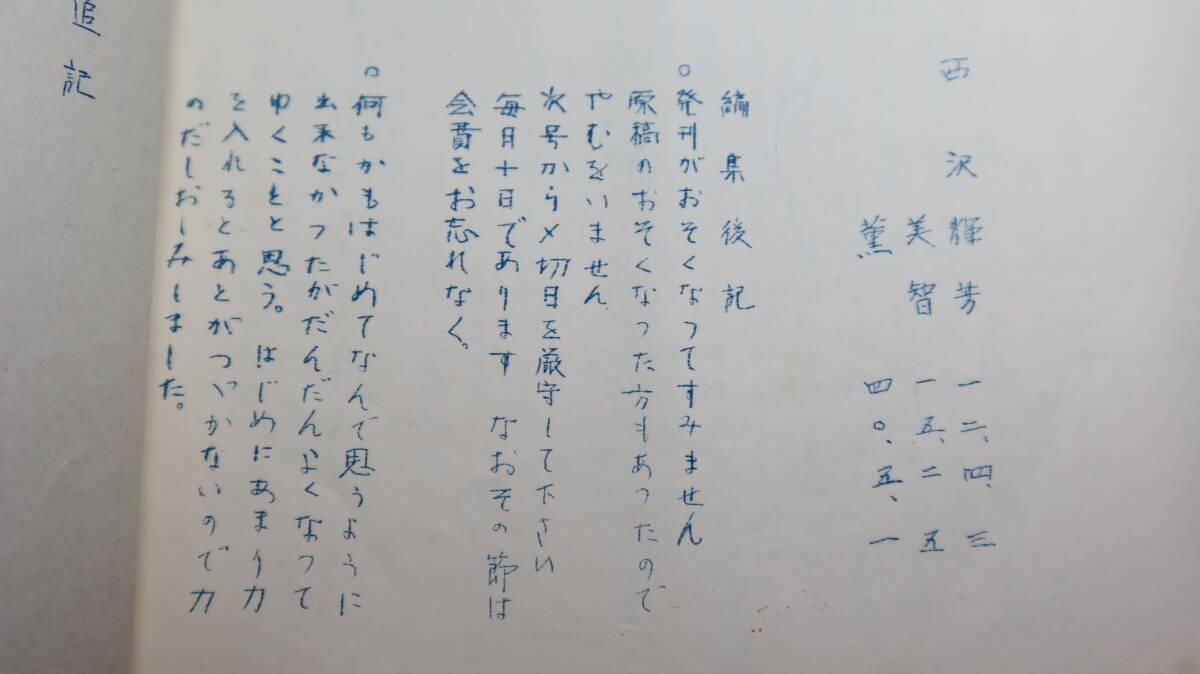 西沢輝芳 一二、四、三
美智 一五、二五
薫 四〇、五、一
編集後記
○発刊がおそくなってすみません
原稿のおそくなった方もあったので
やむをいません
次号から〆切日を厳守して下さい
毎日十日であります なおその節は
会費をお忘れなく。
○何もかもはじめてなんで思うように
出来なかったがだんだんよくなって
ゆくことと思う。 はじめにあまり力
を入れるとあとがつづかないので力
のだしおしみしました。
追記